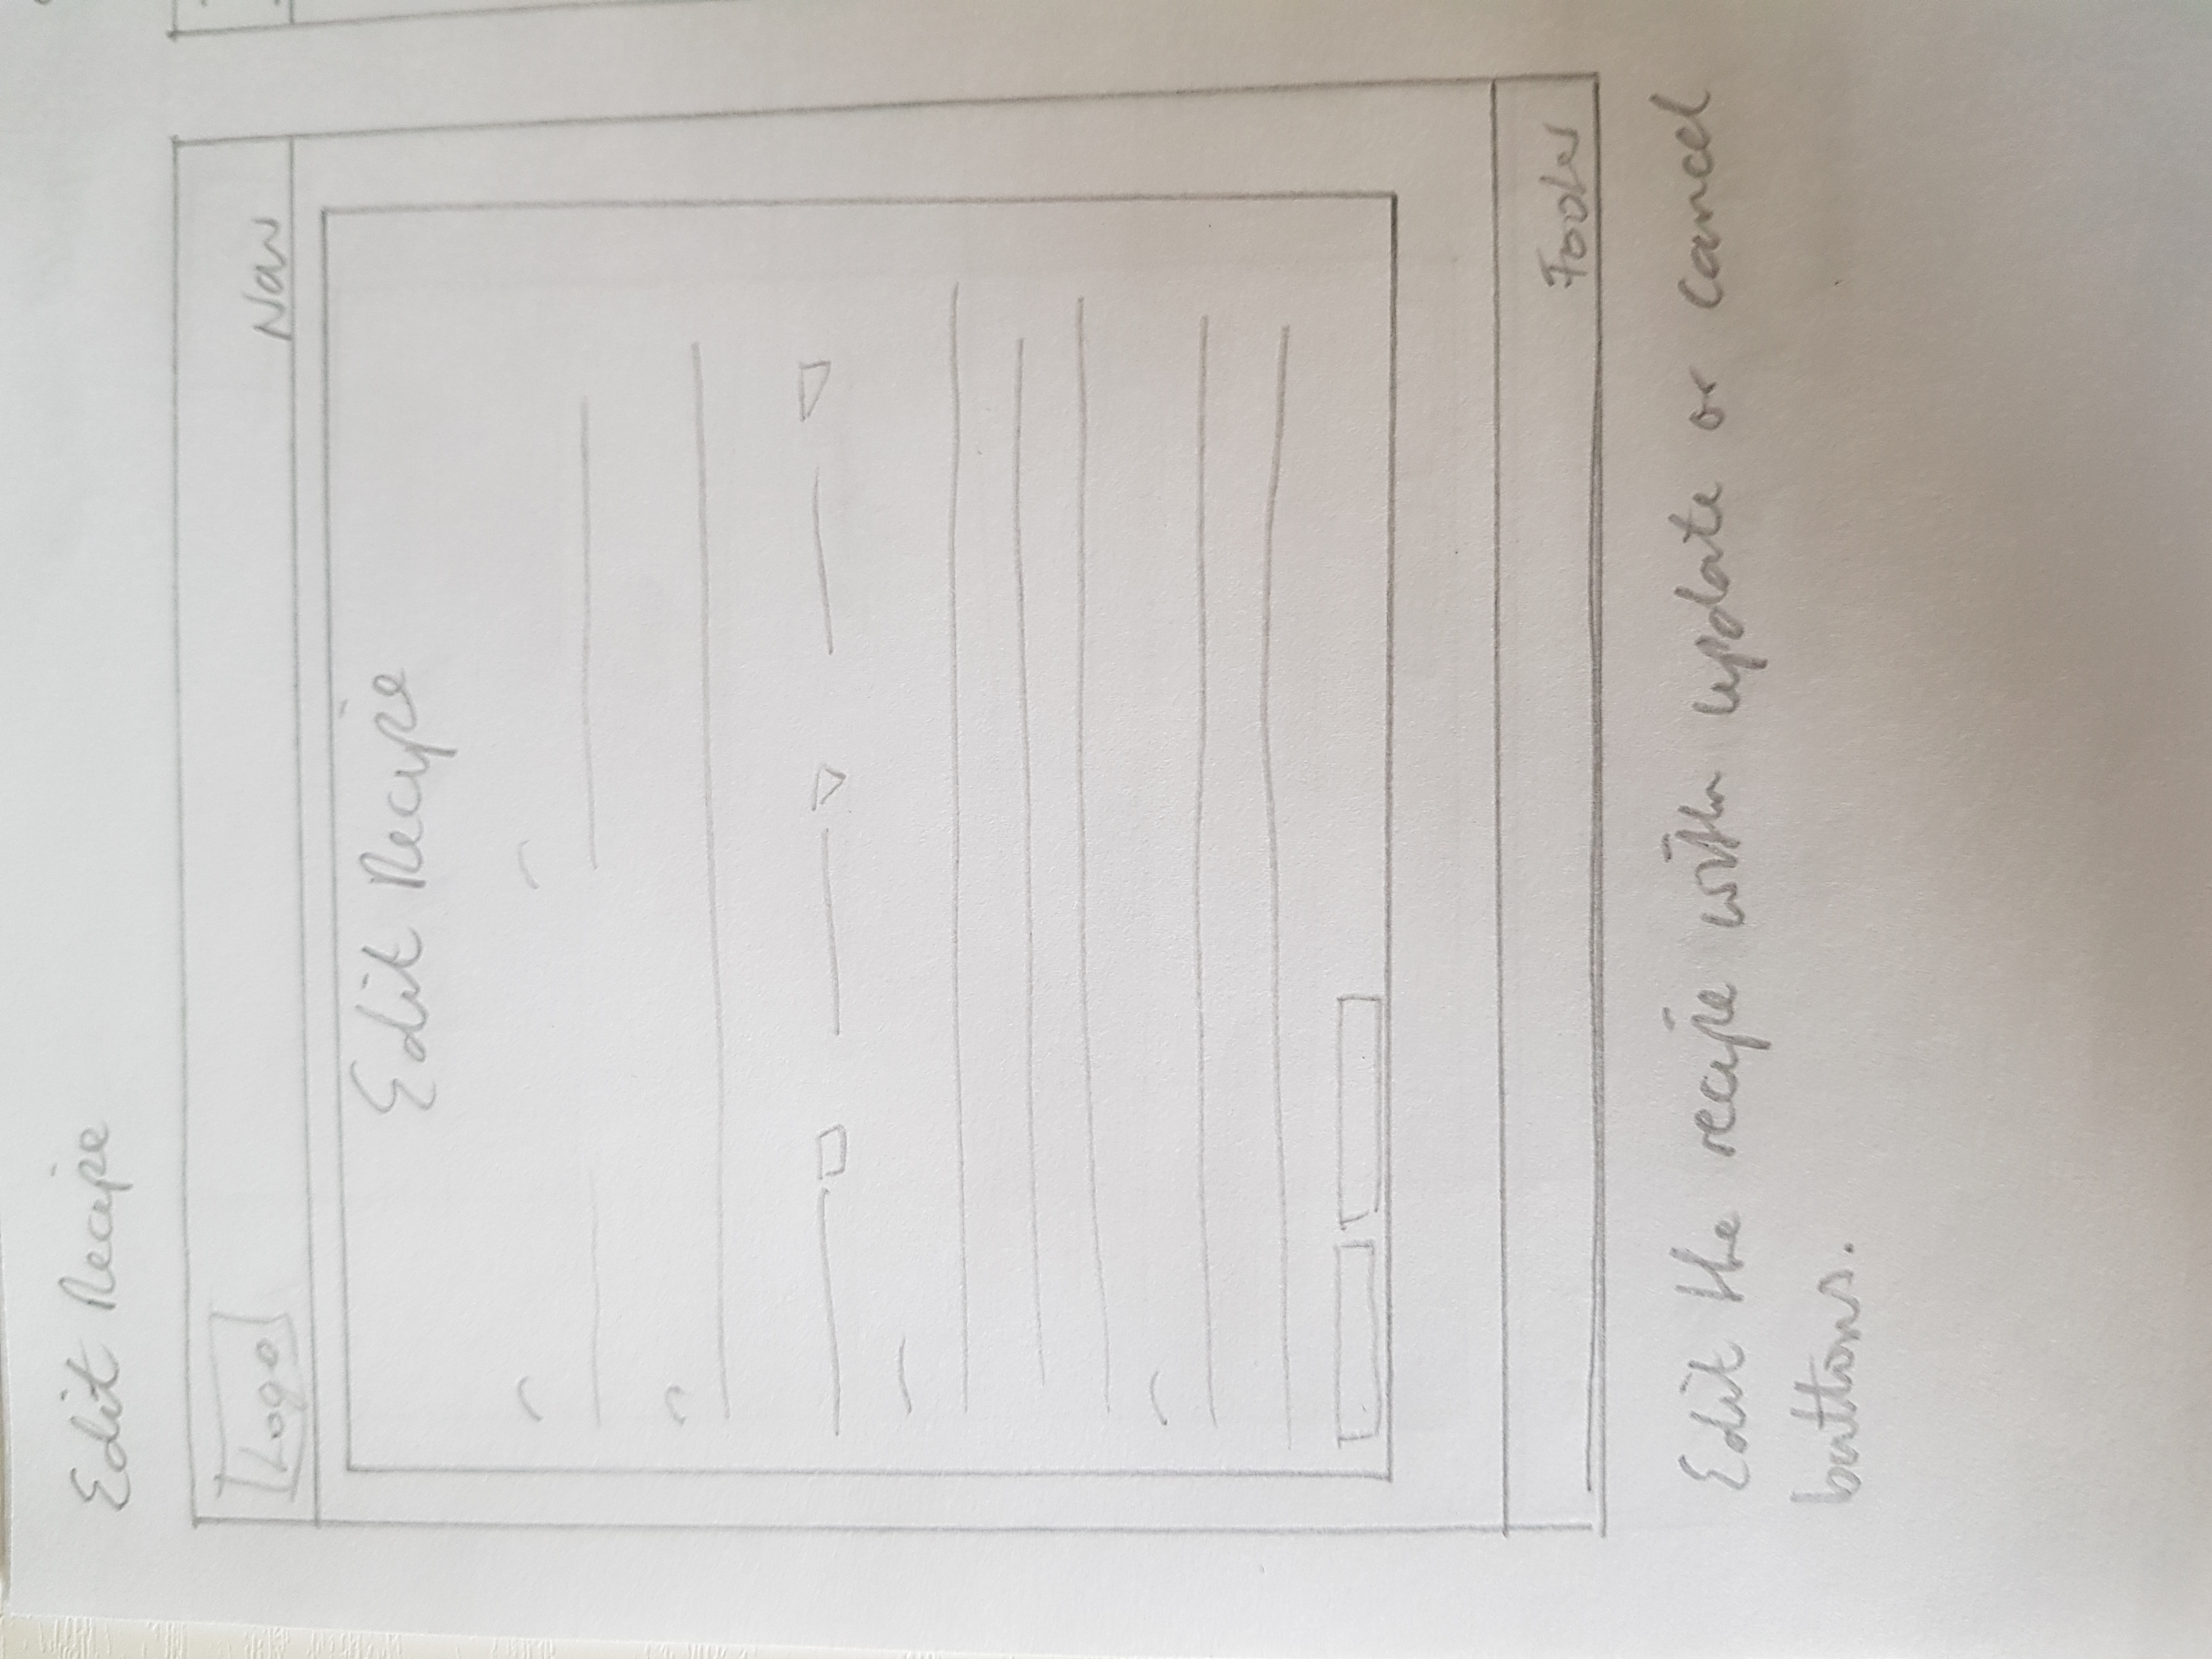 Edit Recipe
Logo
Nav
Edit Recipe
Footer
Edit the recipe with update or cancel
buttons.